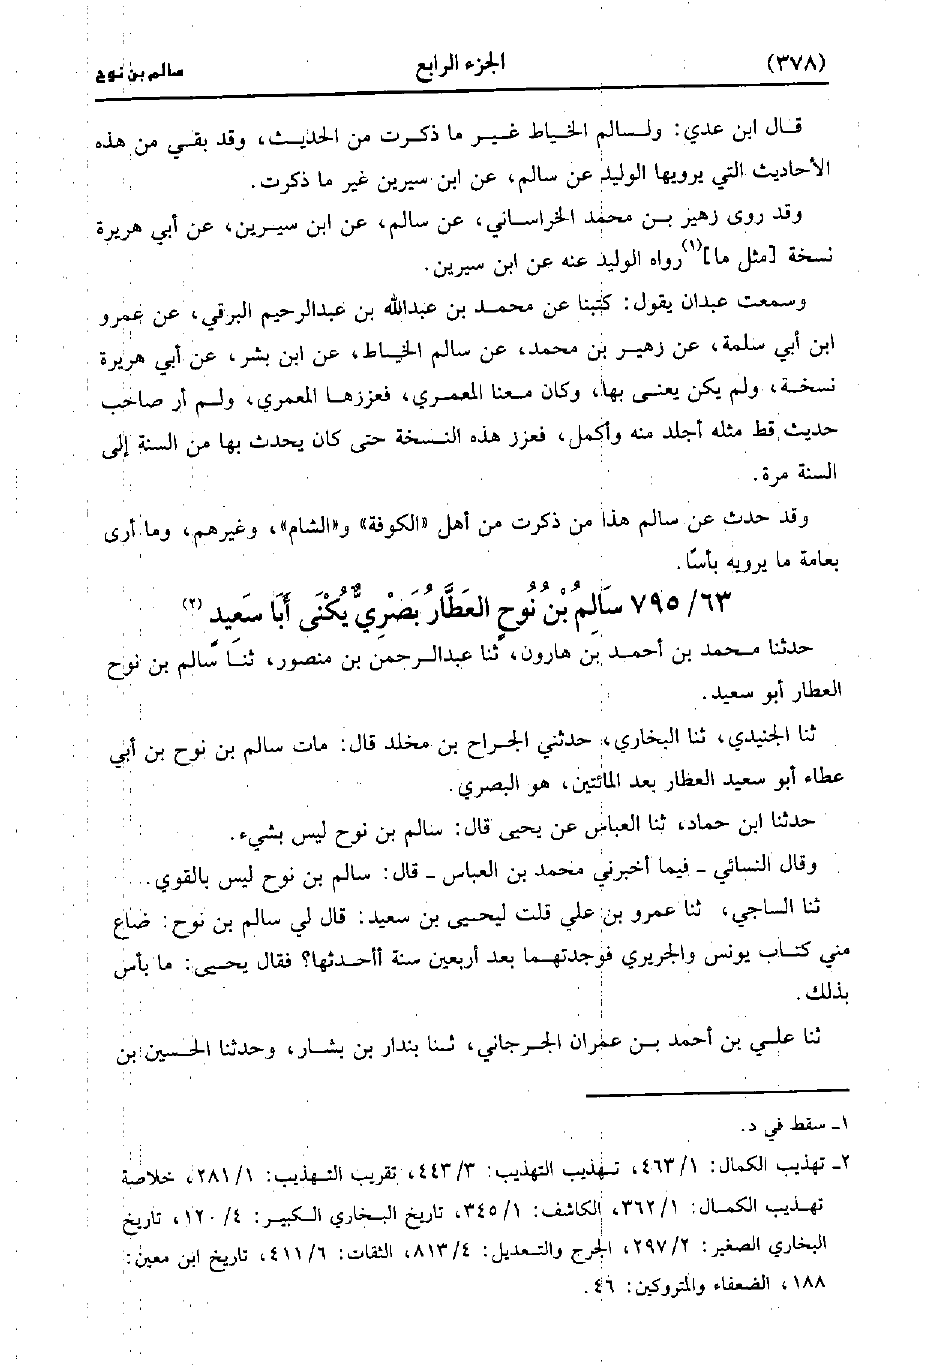 (٣٧٨) الجزء الرابع سالم بن نوح
قـال ابن عدي: ولـسالم الخياط غـيـر ما ذكـرت من الحديـث، وقد بقـي من هذه
الأحاديث التي يرويها الوليد عن سالم، عن ابن سيرين غير ما ذكرت.
وقد روى زهير بـن محمد الخراسـاني، عن سالم، عن ابن سيـرين، عن أبي هريرة
نسخة [مثل ما](١) رواه الوليد عنه عن ابن سيرين.
وسمعت عبدان يقول: كتبنا عن محمـد بن عبدالله بن عبدالرحيم البرقي، عن عمرو
ابن أبي سلمة، عن زهيـر بن محمد، عن سالم الخيـاط، عن ابن بشر، عن أبي هريرة
نسخـة، ولم يكن يعنـى بها، وكان مـعنا المعمـري، فعززهـا المعمري، ولـم أر صاحب
حديث قط مثله أجلد منه وأكمل، فعزز هذه النـسخة حتى كان يحدث بها من السنة إلى
السنة مرة.
وقد حدث عن سالم هذا من ذكرت من أهل «الكوفة» و«الشام»، وغيرهم، وما أرى
بعامة ما يرويه بأسًا.
٧٩٥/٦٣ سَالِمُ بْنُ نُوحٍ العَطَّارُ بَصْرِيٌّ يُكْنَى أَبَا سَعِيد (٢)
حدثنا مـحمد بن أحمـد بن هارون، ثنا عبدالـرحمن بن منصور، ثنـا سالم بن نوح
العطار أبو سعيد.
ثنا الجنيدي، ثنا البخاري، حدثني الجراح بن مخلد قال: مات سالم بن نوح بن أبي
عطاء أبو سعيد العطار بعد المائتين، هو البصري.
حدثنا ابن حماد، ثنا العباس عن يحيى قال: سالم بن نوح ليس بشيء.
وقال النسائي ـ فيما أخبرني محمد بن العباس ـ قال: سالم بن نوح ليس بالقوي.
ثنا الساجي، ثنا عمرو بن علي قلت ليحيـى بن سعيد: قال لي سالم بن نوح: ضاع
مني كتـاب يونس والجريري فوجدتهـما بعد أربعين سنة أأحدثها؟ فقال يحيـى: ما بأس
بذلك.
ثنا علـي بن أحمد بـن عمران الجـرجاني، ثـنا بندار بن بشـار، وحدثنا الحسين بن
١ـ سقط في د.
٢ـ تهذيب الكمال: ٤٦٣/١، تـهذيب التهذيب: ٤٤٣/٣، تقريب التـهذيب: ٢٨١/١، خلاصة
تهـذيب الكمـال: ٣٦٢/١، الكاشف: ٣٤٥/١، تاريخ البـخاري الكـبيـر: ١٢٠/٤، تاريخ
البخاري الصغير: ٢٩٧/٢، الجرح والتـعديل: ٨١٣/٤، الثقات: ٤١١/٦، تاريخ ابن معين:
١٨٨، الضعفاء والمتروكين: ٤٦.